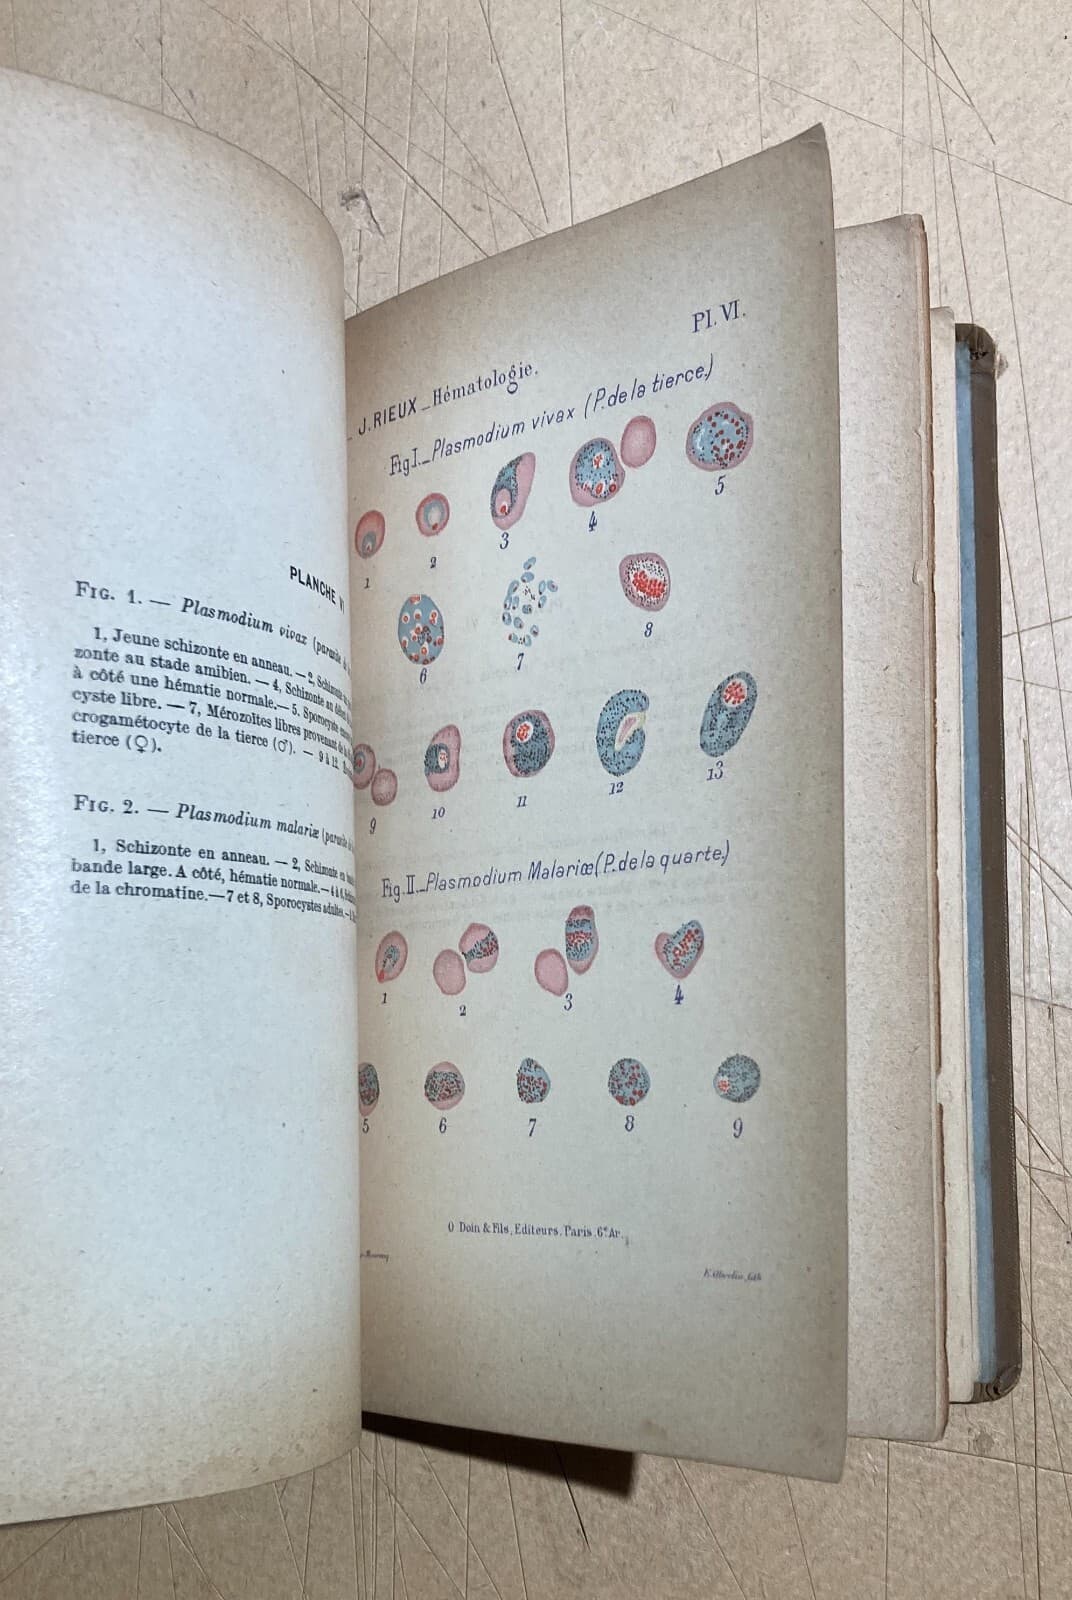 PLANCHE VI
FIG. 1. — Plasmodium vivax (parasite
1, Jeune schizonte en anneau. — 2, Schizonte
zonte au stade amibien. — 4, Schizonte au début
à côté une hématie normale. — 5, Sporocyste
cyste libre. — 7, Mérozoïtes libres provenant de la
crogamétocyte de la tierce (♂). — 9 à 12
tierce (♀).
FIG. 2. — Plasmodium malariæ (parasite
1, Schizonte en anneau. — 2, Schizonte en
bande large. A côté, hématie normale. — 4 à 6,
de la chromatine. — 7 et 8, Sporocystes adultes. —
Pl. VI.
J. RIEUX _ Hématologie.
Fig I. _ Plasmodium vivax (P. de la tierce.)
1 2 3 4 5
6 7 8
9 10 11 12 13
Fig. II. _ Plasmodium Malariœ (P. de la quarte.)
1 2 3 4
5 6 7 8 9
O Doin & Fils, Editeurs, Paris. 6e Ar.